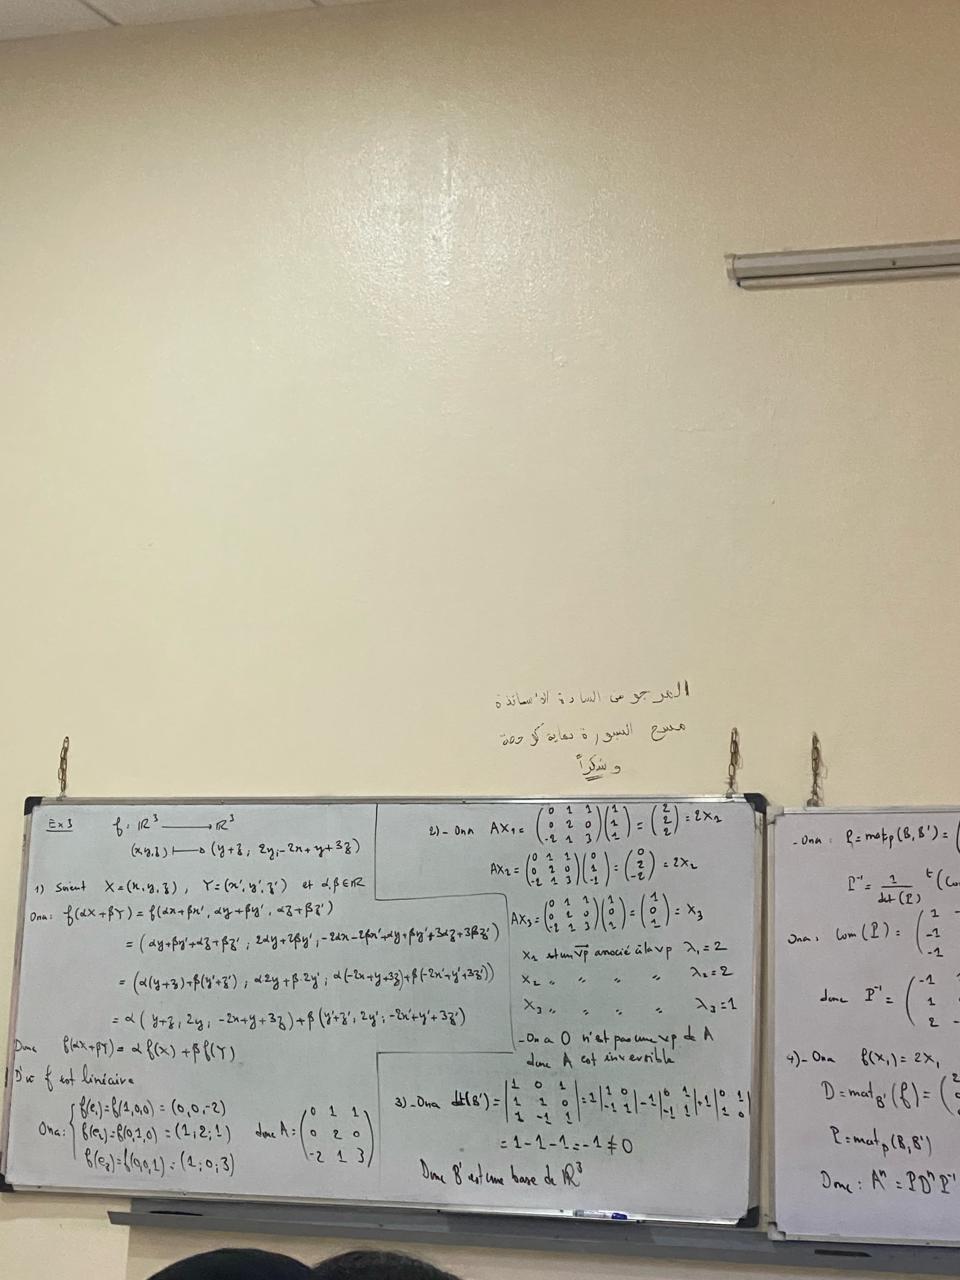 المرجو من السادة الأساتذة
مسح السبورة نهاية كل حصة
و شكراً
Ex 3 f: ℝ³ → ℝ³
(x,y,z) ↦ (y+z, 2y, -2x+y+3z)
1) Soient X=(x,y,z), Y=(x',y',z') et α,β∈ℝ
Ona: f(αX+βY) = f(αx+βx', αy+βy', αz+βz')
= (αy+βy'+αz+βz', 2αy+2βy', -2αx-2βx'+αy+βy'+3αz+3βz')
= (α(y+z)+β(y'+z'), α2y+β2y', α(-2x+y+3z)+β(-2x'+y'+3z'))
= α(y+z, 2y, -2x+y+3z)+β(y'+z', 2y', -2x'+y'+3z')
Donc f(αX+βY) = α f(X) + β f(Y)
D'où f est linéaire
Ona: { f(e₁)=f(1,0,0) = (0,0,-2)
f(e₂)=f(0,1,0) = (1;2;1)
f(e₃)=f(0,0,1) = (1;0;3)
donc A = (0 1 1
0 2 0
-2 1 3)
2)- Ona AX₁ = (0 1 1 / 0 2 0 / -2 1 3)(1 / 1 / 1) = (2 / 2 / 2) = 2X₁
AX₂ = (0 1 1 / 0 2 0 / -2 1 3)(0 / 1 / -1) = (0 / 2 / -2) = 2X₂
AX₃ = (0 1 1 / 0 2 0 / -2 1 3)(1 / 0 / 1) = (1 / 0 / 1) = X₃
X₁ est un vp associé à la vp λ₁=2
X₂ " " " λ₂=2
X₃ " " " λ₃=1
- On a 0 n'est pas une vp de A
donc A est inversible
3)- Ona det(B') = |1 0 1 / 1 1 0 / 1 -1 1| = 1|1 0 / -1 1| -1|0 1 / -1 1| +1|0 1 / 1 0|
= 1-1-1 = -1 ≠ 0
Donc B' est une base de ℝ³
- Ona: P = matp(B,B') = (
P⁻¹ = 1/det(P) t(Com
Ona: Com(P) = (1 - / -1 / -1
donc P⁻¹ = (-1 1 / 1 0 / 2 -
4)- Ona f(X₁) = 2X₁
D = mat_B'(f) = (
P = matp(B,B')
Donc: Aⁿ = PDⁿP⁻¹